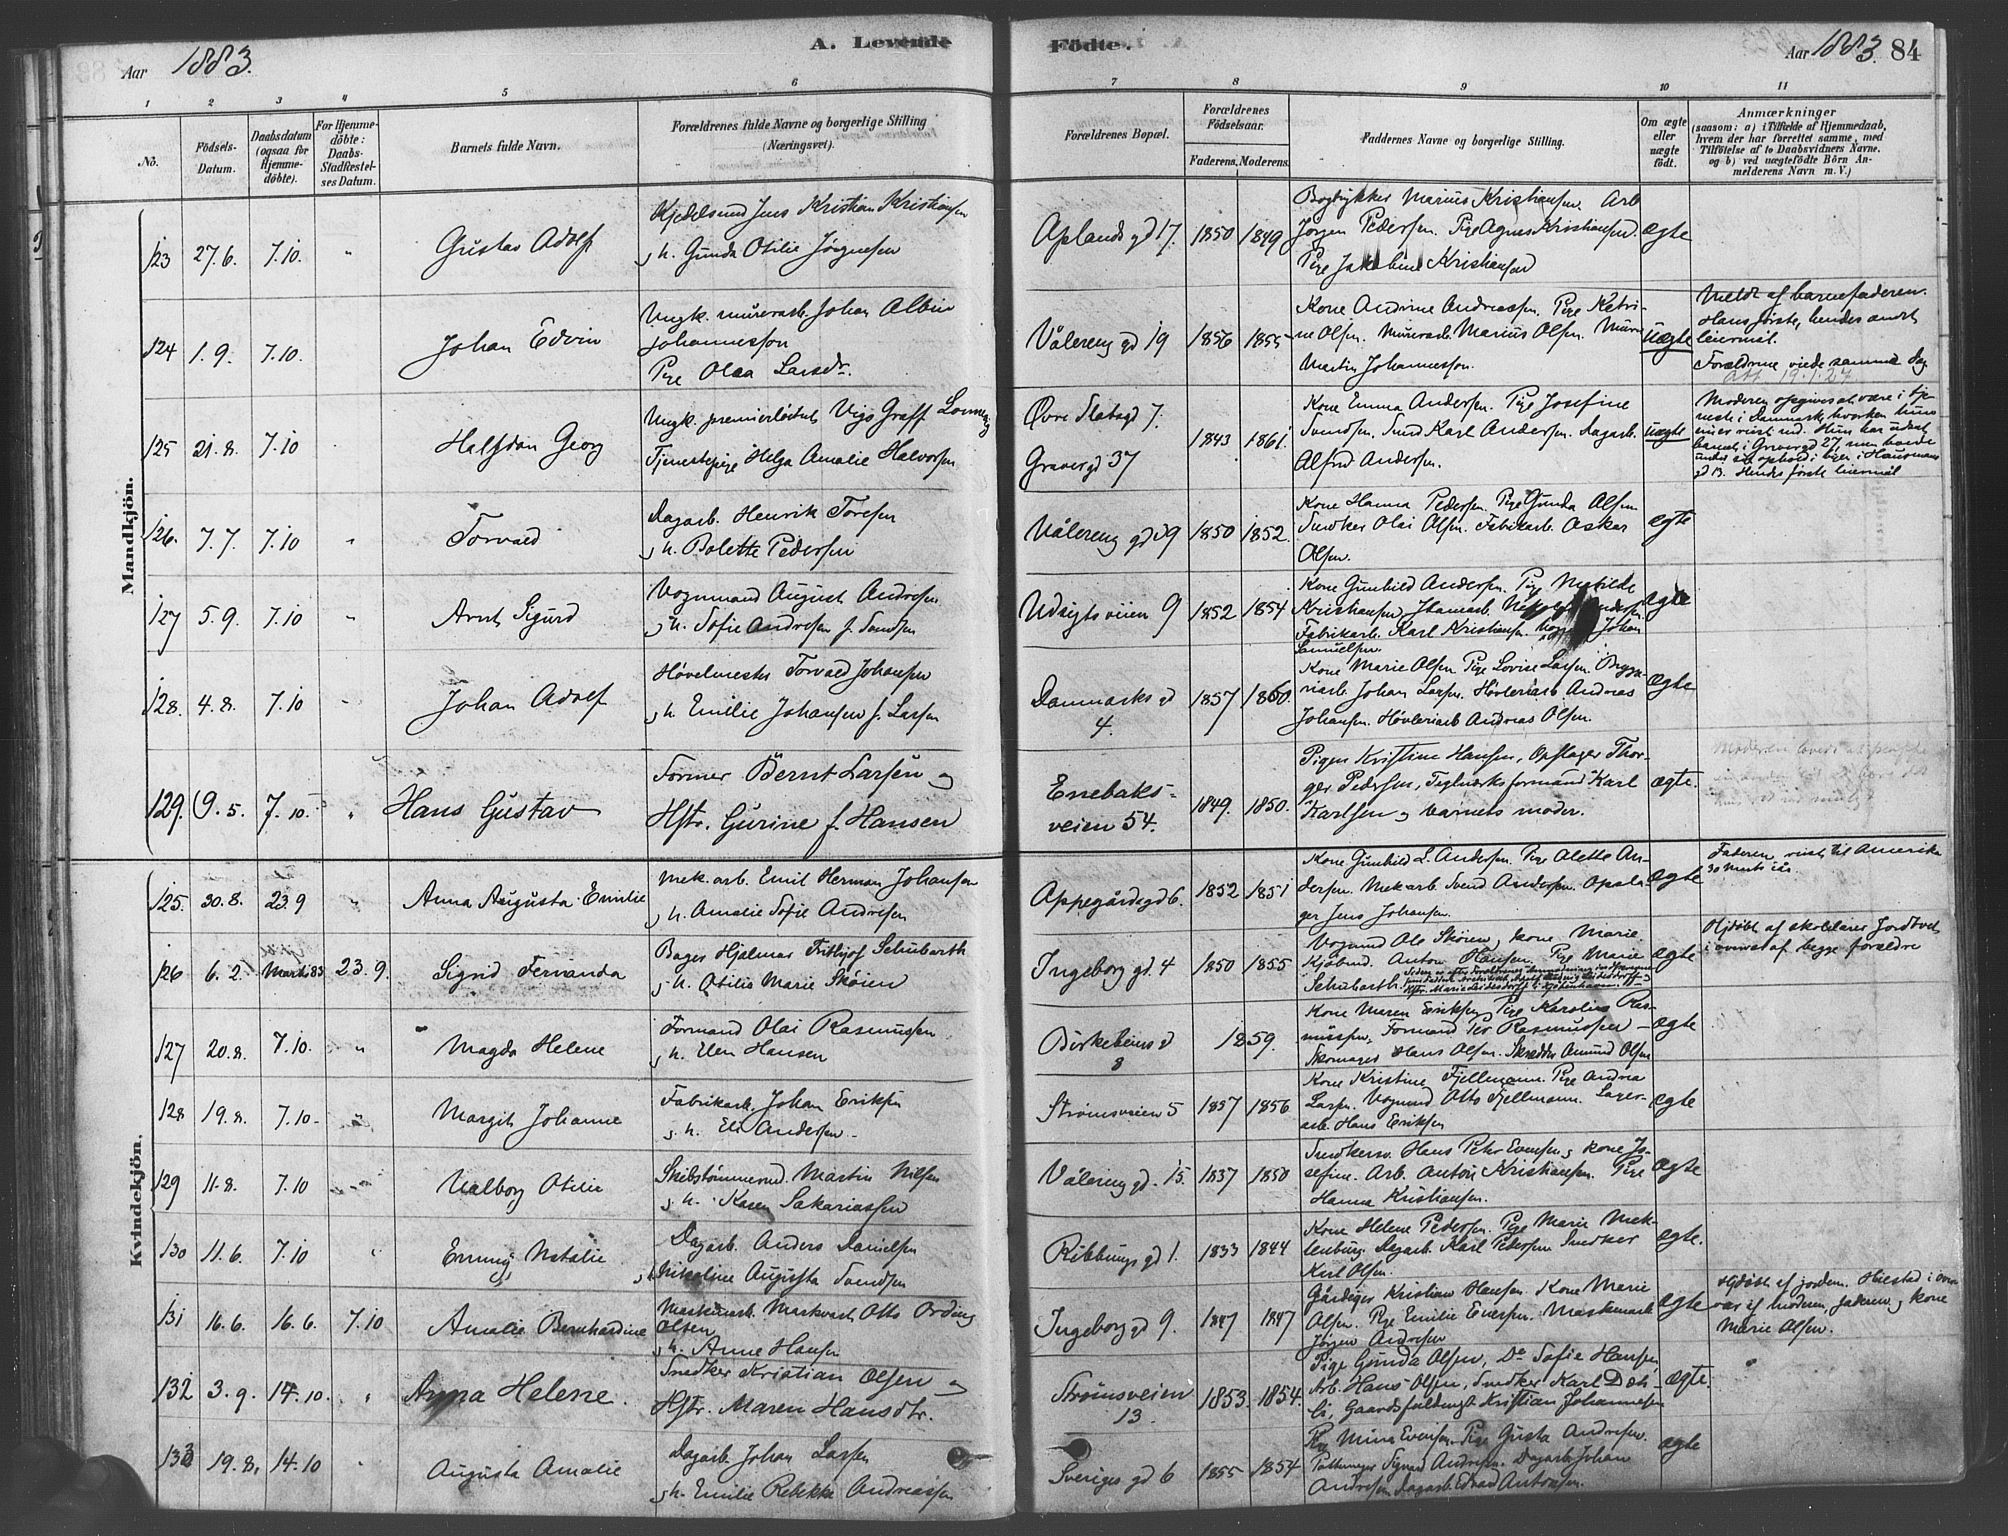 Aar 1883.
A. Levende Födte.
Aar 1883. 84
1 2 3 4 5 6 7 8 9 10 11
No.
Födsels-Datum.
Daabsdatum (ogsaa for Hjemme-döbte).
For Hjemme-döbte: Daabs-Stadfæstel-ses Datum.
Barnets fulde Navn.
Forældrenes fulde Navne og borgerlige Stilling (Næringsvei).
Forældrenes Bopæl.
Forældrenes Födselsaar.
Faderens. Moderens.
Faddernes Navne og borgerlige Stilling.
Om ægte eller uægte födt.
Anmærkninger
(saasom: a) i Tilfælde af Hjemmedaab,
hvem der har forrettet samme, med
Tilföielse af to Daabsvidners Navne.
og b) ved uægtefödte Börn An-
melderens Navn m.V.)
Mandkjön.
123 27.6. 7.10. " Gustav Adolf
Kjedelsmed Jens Kristian Kristiansen
og h. Gunda Otilie Jørgensen
Aplands gd 17. 1850 1849
Bogtrykker Marius Kristiansen. Arb
Jörgen Pedersen. Pige Agnes Kristiansen.
Pige Jakobine Kristiansen
ægte
124 1.9. 7.10. Johan Edvin
Ungk. murerarb. Johan Albin
Johannesson
Pige Olava Larsdr.
Vålereng gd 19 1856 1855
Kone Andrine Andreassen. Pige Katri-
ne Olsen. Murerarb. Marius Olsen. Murer
Martin Johannesson.
uægte
Meldt af barnefaderen.
Hans første, hendes andet
leiermål.
Forældrene viede samme dag.
Att. 19.1.27
125 21.8. 7.10 Halfdan Georg
Ungk. premierløitnt Vigo Graff
Tjenestepige Helga Amalie Halvorsen
Øvre Slotsgd 7.
Gravergd 37
1843 1861.
Kone Emma Andersen. Pige Josefine
Svendsen. Smed Karl Andersen. Dagarb.
Alfred Andersen.
uægte
Moderen opgives at være i tje-
neste i Danmark, hvorhen hun
nu er reist ud. Hun har
barnet i Gravergd 27 men havde
gd 13. Hendes første leiermål
126. 7.7. 7.10 " Torvald
Dagarb. Henrik Toresen
og h. Bolette Pedersen
Vålereng gd 29 1850 1852.
Kone Hanna Pedersen. Pige Gunda Olsen
Snedker Olai Olsen. Fabrikarb. Oskar
Olsen.
ægte
127 5.9. 7.10 " Arnt Sigurd
Vognmand August Andresen
og h. Sofie Andresen f. Svendsen
Udsigtsveien 9 1852 1854
Kone Gunhild Andersen. Pige Matilde
Kristiansen. Andersen
Fabrikarb. Karl Kristiansen. Johan
Samuelsen.
ægte
128. 4.8. 7.10 Johan Adolf
Høvelmester Torvald Johansen
og h. Emilie Johansen f. Larsen
Danmarks gd 4. 1857 1860.
Kone Marie Olsen Pige Lovise Larsen. Brygge-
riarb. Johan Larsen. Høvleriarb Andreas
Johansen. Høvleriarb Andreas Olsen.
ægte
129. 9.5. 7.10. " Hans Gustav
Former Bernt Larsen og
Hstr. Gurine f. Hansen
Enebaks-veien 54. 1849. 1850.
Pigen Kristine Hansen, Opslager Thor-
ger Pedersen, Teglværksformand Karl
Karlsen og barnets moder.
ægte.
Kvindekjön.
125. 30.8. 23.9 " Anna Augusta Emilie
Mek. arb. Emil Herman Johansen
og h. Amalie Sofie Andresen
Appegårdsgd 6. 1852 1851
Kone Gunhild L. Andersen. Pige Alette An-
dersen. Mek arb. Svend Andersen. Opsla-
ger Jens Johansen.
ægte
Faderen reist til Amerika
126 6.2. Marts 83 23.9. Sigrid Fernanda
Bager Hjalmar Fritjof Schubarth
og h. Otilie Marie Skøien
Ingeborg gd. 4 1850 1855
Vognmd Ole Skøien og kone Marie
Kjøbmd. Anton Hansen. Pige Marie
Schubarth.
ægte
Hjdøbt af skolelærer Jordtvet
i overvær af begge forældre
127 20.8. 7.10. " Magda Helene
Formand Olai Rasmussen
og h. Elen Hansen
Birkebeiner gd 8 1859.
Kone Maren Eriksen Pige Karoline Ras-
mussen. Formand Per Rasmussen
Skomager Hans Olsen. Skrædder Amund Olsen
ægte
128 19.8. 7.10. Margit Johanne
Fabrikarb. Johan Eriksen
og h. Eli Andersen
Strømsveien 5 1857 1856
Kone Kristine Fjellmann. Pige Andrea
Larsen. Vognmd Otto Fjellmann. Lager-
arb. Hans Eriksen
ægte
129 11.8. 7.10 Valborg Otilie
Skibstømmermd. Martin Nilsen
og h. Karen Sakariassen
Vålereng gd. 15. 1837 1850
Snedkersv. Hans Peter Evensen og kone Jo-
sefine. Arb. Anton Kristiansen. Pige
Hanna Kristiansen.
ægte
130 11.6. 7.10 " Emmy Natalie
Dagarb. Anders Danielsen
Nikoline Augusta Svendsen
Ribbungs gd 1. 1833 1844
Kone Helene Pedersen. Pige Marie Mek-
lenburg. Dagarb. Karl Pedersen. Snedker
Karl Olsen.
ægte.
131 16.6. 16.6. 7.10 Amalie Bernhardine
Maskinarb. Markvard Otto Ording
Olsen
og h. Anne Hansen
Ingeborg gd 9. 1847 1847
Gårdeier Kristian Hansen. Kone Marie
Olsen. Pige Emilie Evensen. Maskinarb
Jörgen Andresen
ægte
Hjdøbt af jordem. Hiested i over
vær af moderen, faderen og kone
Marie Olsen.
132 3.9. 14.10. " Anna Helene.
Snedker Kristian Olsen og
Hstr. Maren Hansdtr.
Strømsveien 13. 1853. 1854.
Pige Gunda Olsen, Do Sofie Hansen,
Arb. Hans Olsen, Snedker Karl Dæh-
li, Gaardsfuldmægt Kristian Johannesen
ægte.
133 19.8. 14.10 Augusta Amalie
Dagarb. Johan Larsen
og h. Emilie Rebekka Andreassen
Sveriges gd 6 1855 1854
Pige Mina Evensen. Pige Gusta Andresen.
Pottemager Sigvard Andresen. Dagarb Johan
Andresen Dagarb. Edvard Antonsen.
ægte